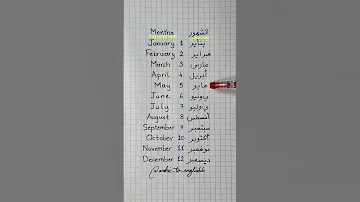 Months الشهور
January 1 يناير
February 2 فبراير
March 3 مارس
April 4 أبريل
May 5 مايو
June 6 يونيو
July 7 يوليو
August 8 أغسطس
September 9 سبتمبر
October 10 أكتوبر
November 11 نوفمبر
December 12 ديسمبر